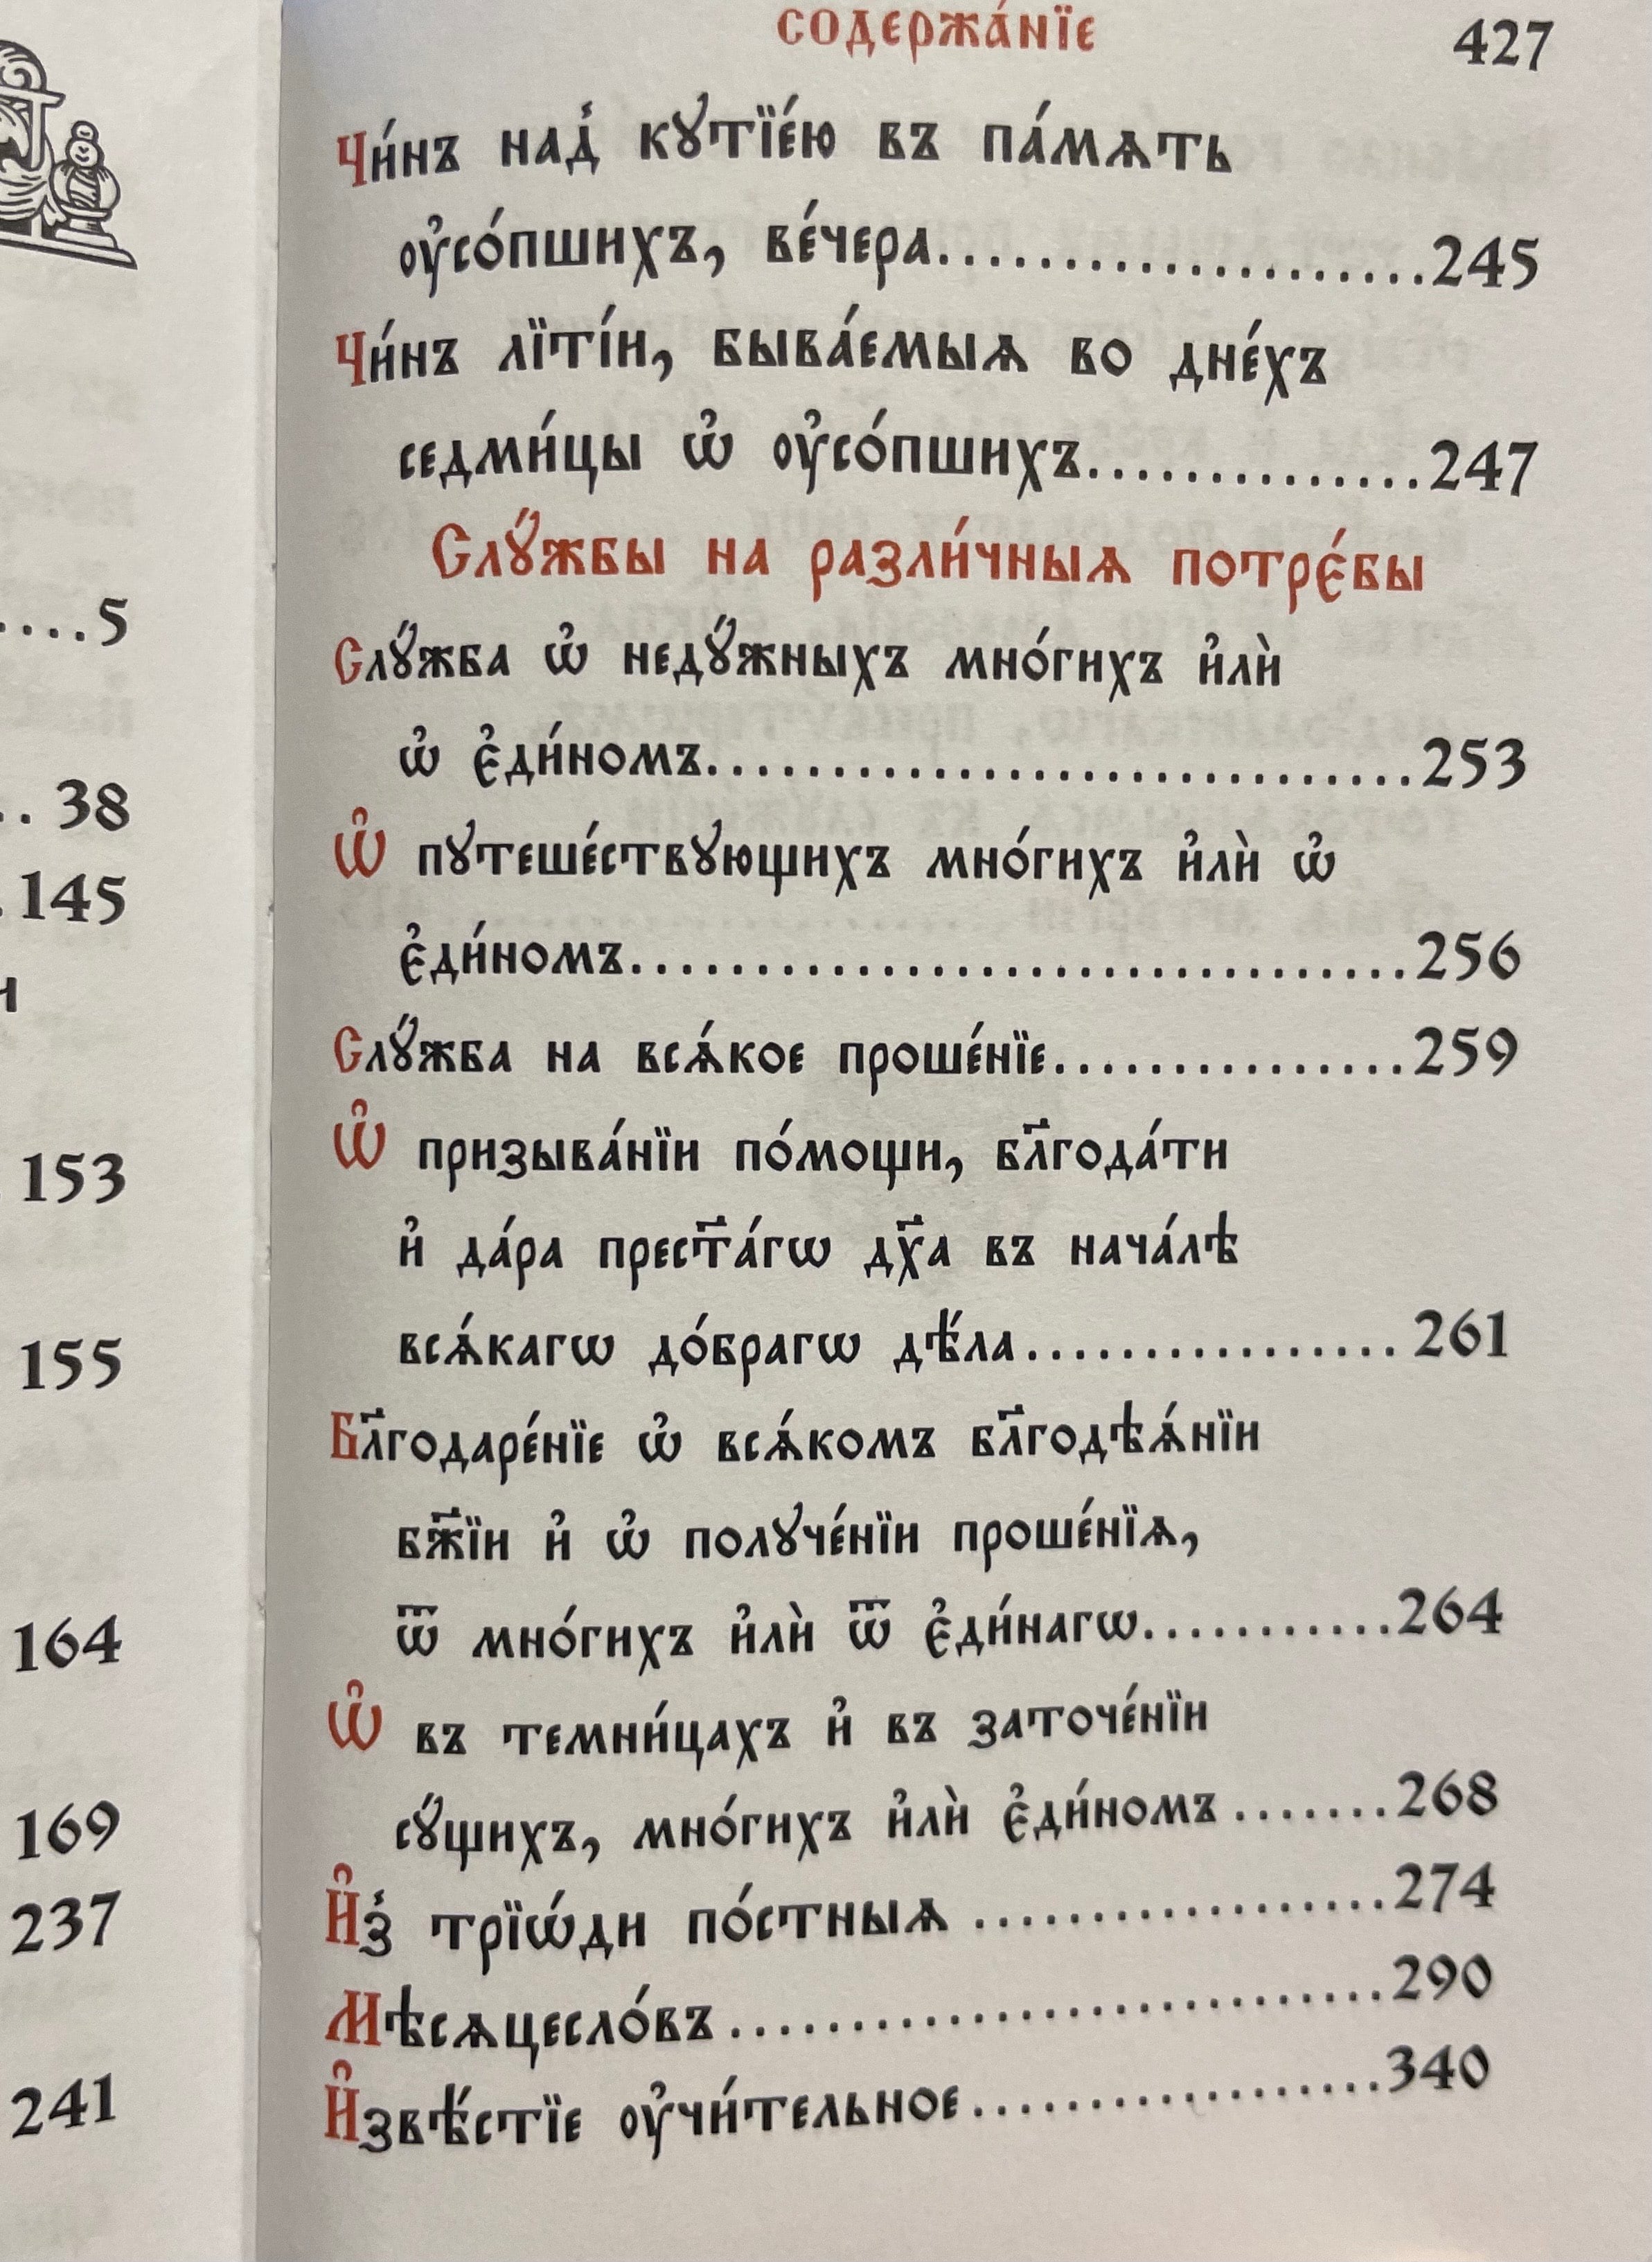 ....5
.. 38
. 145
и
153
155
164
169
237
241
содержа́нїе 427
Чи́нъ над̾ кꙋтїе́ю въ па́мѧть
ᲂу҆со́пшихъ, ве́чера....................245
Чи́нъ лїті́и, быва́емыѧ во дне́хъ
седми́цы ѡ҆ ᲂу҆со́пшихъ..............247
Слꙋ́жбы на разли́чныѧ потрє́бы
Слꙋ́жба ѡ҆ недꙋ́жныхъ мно́гихъ и҆лѝ
ѡ҆ є҆ди́номъ.............................253
Ѡ҆ пꙋтеше́ствꙋющихъ мно́гихъ и҆лѝ ѡ҆
є҆ди́номъ................................256
Слꙋ́жба на всѧ́кое проше́нїе...............259
Ѡ҆ призыва́нїи по́мощи, бл҃года́ти
и҆ да́ра прест҃а́гѡ дх҃а въ нача́лѣ
всѧ́кагѡ до́брагѡ дѣ́ла................261
Бл҃годаре́нїе ѡ҆ всѧ́комъ бл҃годѣѧ́нїи
бж҃їи и҆ ѡ҆ полꙋче́нїи проше́нїѧ,
ѿ мно́гихъ и҆лѝ ѿ є҆ди́нагѡ...........264
Ѡ҆ въ темни́цахъ и҆ въ заточе́нїи
сꙋ́щихъ, мно́гихъ и҆лѝ є҆ди́номъ.......268
И҆з̾ трїѡ́ди по́стныѧ .................274
Мѣсѧцесло́въ ...........................290
И҆звѣ́стїе ᲂу҆чи́тельное.................340